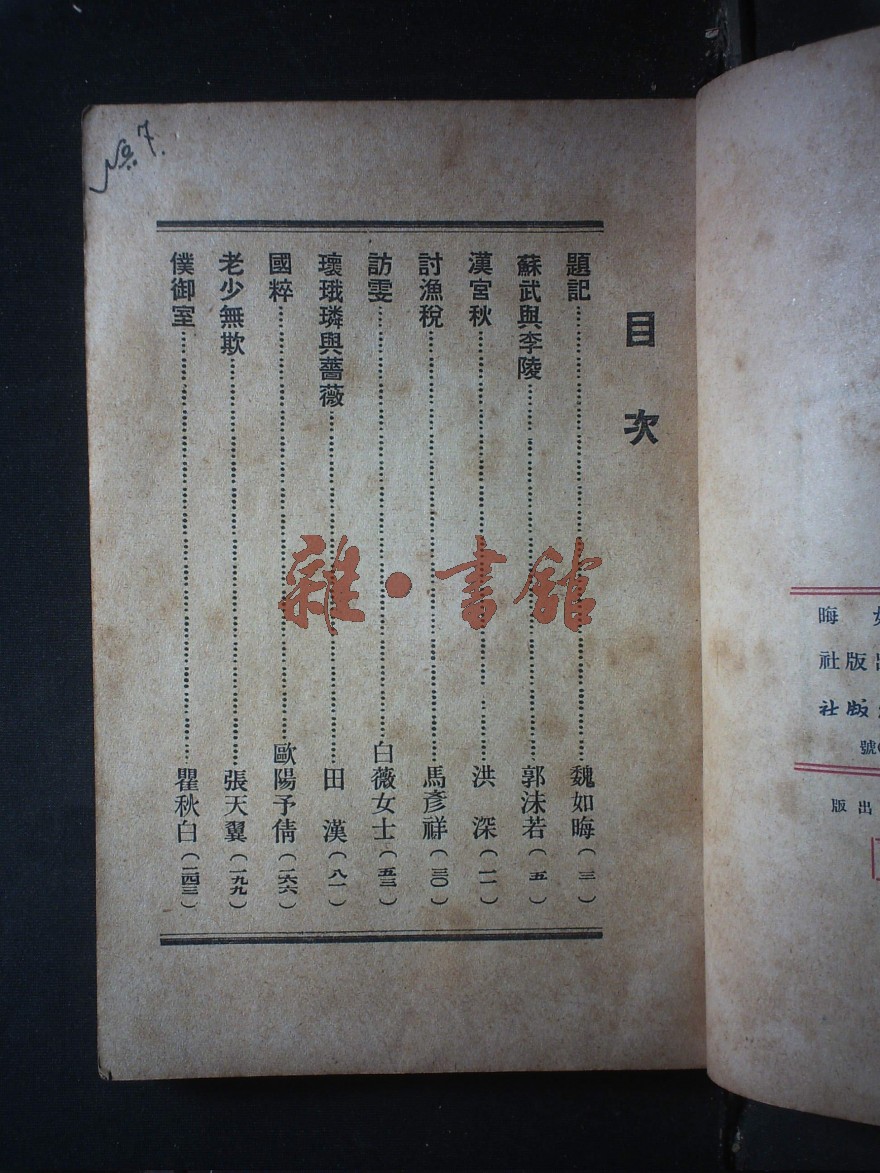 目次
題記……魏如晦(三)
蘇武與李陵……郭沫若(五)
漢宮秋……洪深(一一)
討漁稅……馬彥祥(三〇)
訪雯……白薇女士(五三)
瓌珴璘與薔薇……田漢(八一)
國粹……歐陽予倩(一六六)
老少無欺……張天翼(一九九)
僕御室……瞿秋白(二四三)
No. 7.
雜·書館
晦
出版社
版社
號
出版